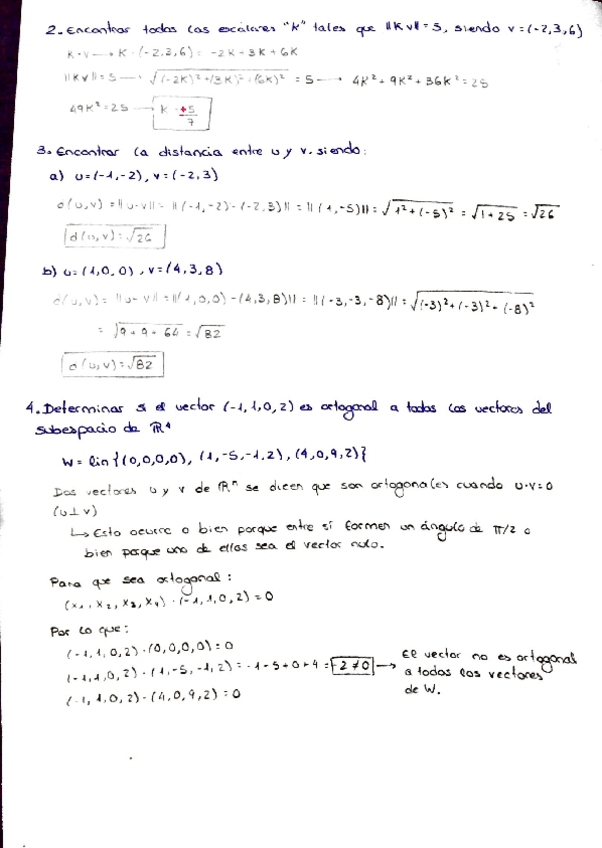 2. Encontrar todos los escalares "K" tales que ||Kv||=5, siendo v=(-2,3,6)
K·v → K·(-2,3,6) = -2K+3K+6K
||Kv||=5 → √(-2K)²+(3K)²+(6K)² = 5 → 4K²+9K²+36K²=25
49K²=25 → K = ±5/7
3. Encontrar la distancia entre u y v. siendo:
a) u=(-1,-2), v=(-2,3)
d(u,v)=||u-v||=||(-1,-2)-(-2,3)||=||(1,-5)||=√1²+(-5)² = √1+25 = √26
d(u,v)=√26
b) u=(1,0,0), v=(4,3,8)
d(u,v)=||u-v||=||(1,0,0)-(4,3,8)||=||(-3,-3,-8)||=√(-3)²+(-3)²+(-8)²
= √9+9+64 = √82
d(u,v)=√82
4. Determinar si el vector (-1,1,0,2) es ortogonal a todos los vectores del
subespacio de ℝ⁴
W = lin{(0,0,0,0), (1,-5,-1,2), (4,0,9,2)}
Dos vectores u y v de ℝⁿ se dicen que son ortogonales cuando u·v=0
(u⊥v)
↳ Esto ocurre o bien porque entre sí formen un ángulo de π/2 o
bien porque uno de ellos sea el vector nulo.
Para que sea ortogonal:
(x₁, x₂, x₃, x₄)·(-1,1,0,2)=0
Por lo que:
(-1,1,0,2)·(0,0,0,0)=0
(-1,1,0,2)·(1,-5,-1,2)=-1-5+0+4=-2≠0 → El vector no es ortogonal
a todos los vectores
de W.
(-1,1,0,2)·(4,0,9,2)=0